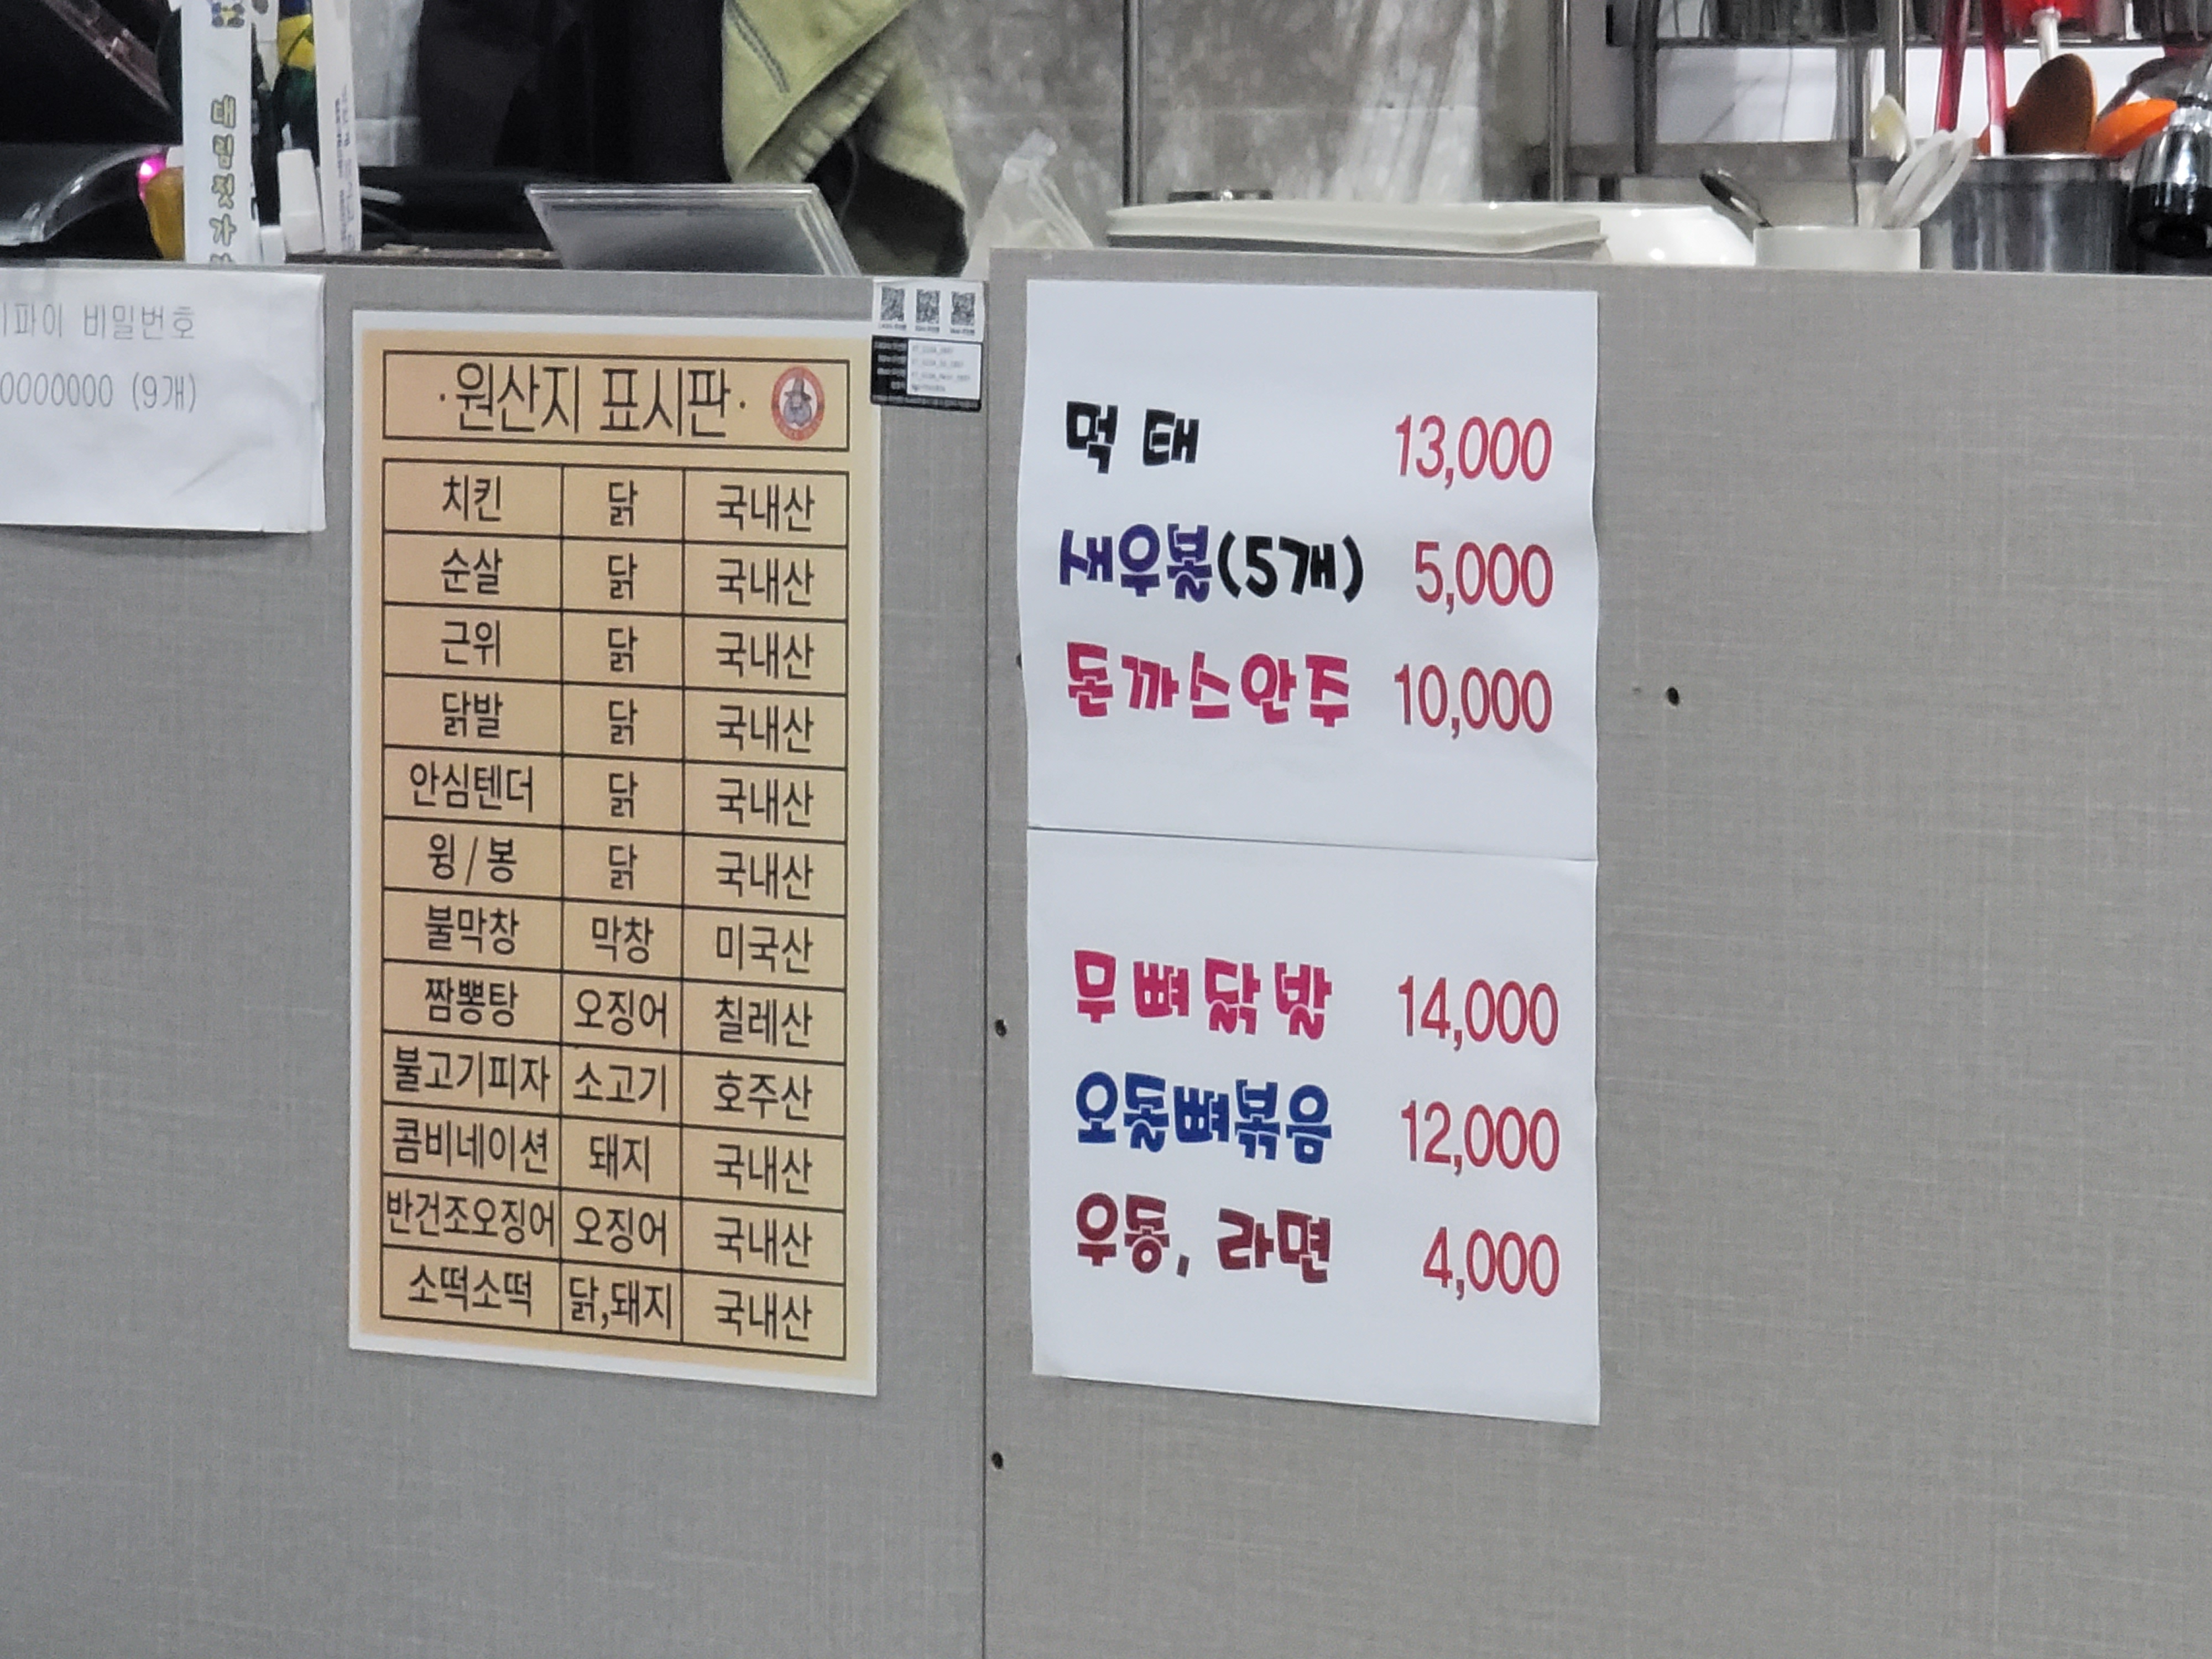 대림젓가
이파이 비밀번호
0000000 (9개)
·원산지 표시판·
치킨 닭 국내산
순살 닭 국내산
근위 닭 국내산
닭발 닭 국내산
안심텐더 닭 국내산
윙/봉 닭 국내산
불막창 막창 미국산
짬뽕탕 오징어 칠레산
불고기피자 소고기 호주산
콤비네이션 돼지 국내산
반건조오징어 오징어 국내산
소떡소떡 닭,돼지 국내산
먹태 13,000
포우볼(5개) 5,000
돈까스안주 10,000
무뼈닭발 14,000
오돌뼈볶음 12,000
우동, 라면 4,000